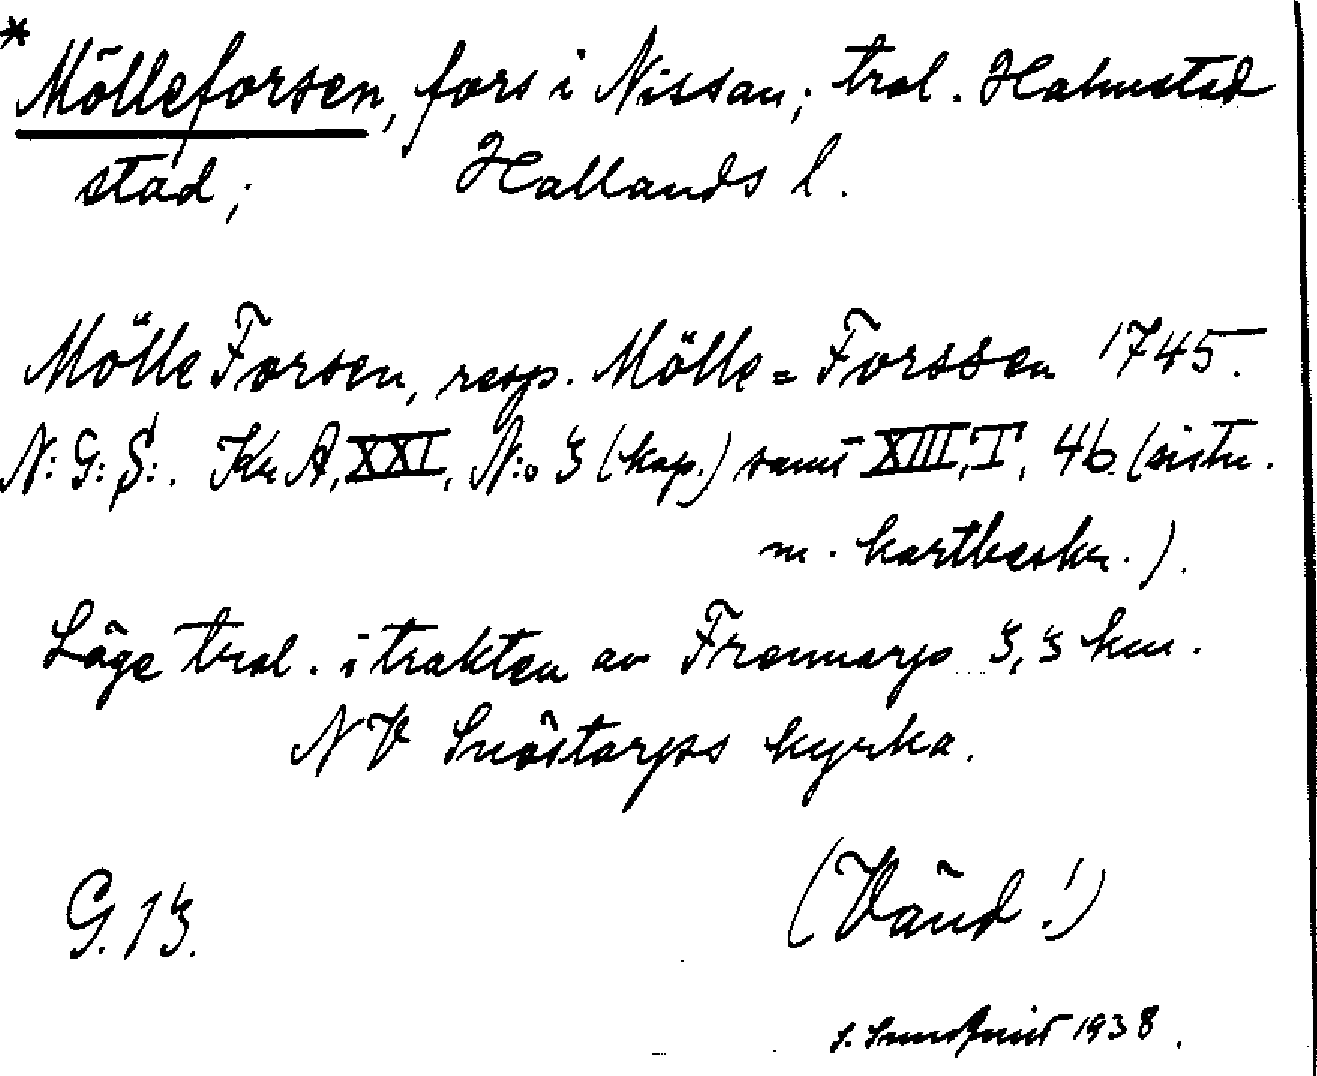 * Mölleforsen, fors i Nissan; trol. Halmstad
stad; Hallands l.
Mölle Forsen, resp. Mölle = Forssen 1745.
N: G: S:. Kr A, XXI, N:o 3 (kop.) samt XIII, I, 46. (situ.
m. kartbeskr.).
Läge trol. i trakten av Frennarp 3,3 km.
NV Snöstorps kyrka.
G. 13.
(Vänd!)
S. Sundqvist 1938.